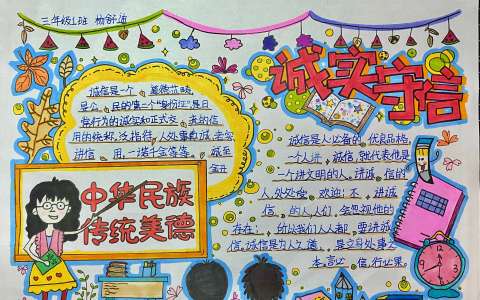 三年级1班 杨舒涵
诚实守信
诚信是一个 道德范畴
是公 民的第一个"身份证"是日
常行为的诚实和正式交 者的信
用的统称,泛指待人处事真诚、老实
讲信 用,一诺千金等等。
中华民族
传统美德
诚信是人必备的 优良品格,
一个人讲 诚信,就代表他是
一个讲文明的人。讲诚 信的
人,处处受 欢迎;不 讲诚
信 的人,人们 会忽视他的
存在; 所以我们人人都 要讲诚
信,诚信是为人之道, 是立身处事之
本,言必 信,行必果。